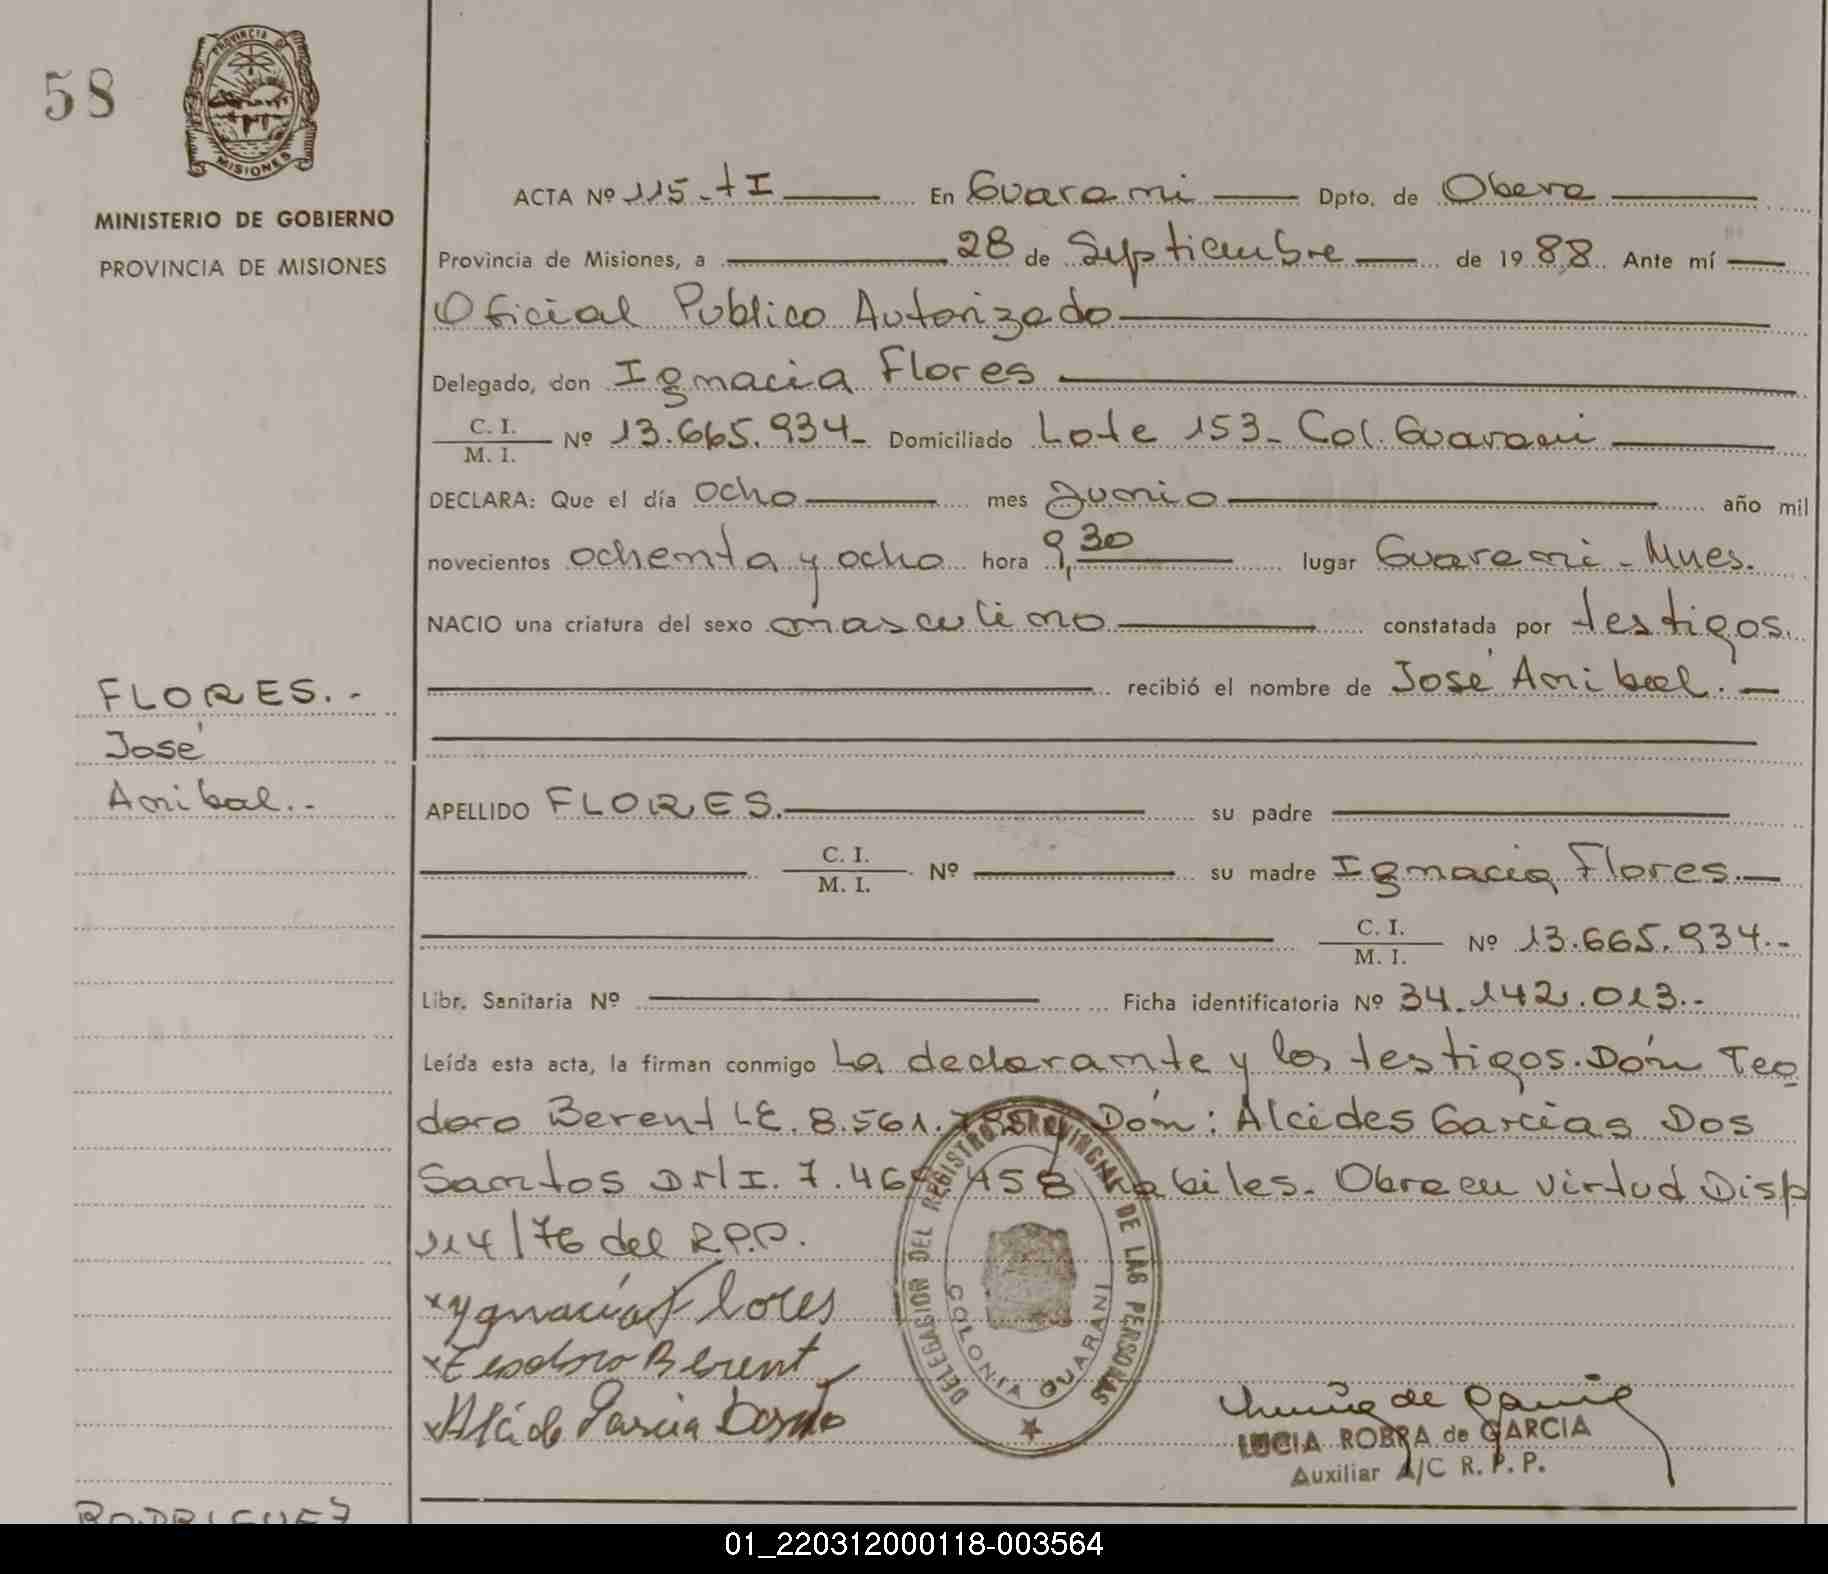 58
PROVINCIA DE
MISIONES
MINISTERIO DE GOBIERNO
PROVINCIA DE MISIONES
ACTA Nº 115 - tI En Guarani Dpto. de Obera
Provincia de Misiones, a 28 de Septiembre de 1988 Ante mí
Oficial Publico Autorizado
Delegado, don Ignacia Flores
C. I. / M. I. Nº 13.665.934 - Domiciliado Lote 153 - Col. Guarani
DECLARA: Que el día ocho mes Junio año mil
novecientos ochenta y ocho hora 9,30 lugar Guarani - Mnes.
NACIO una criatura del sexo masculino constatada por testigos.
recibió el nombre de José Anibal. -
FLORES. -
José
Anibal. -
APELLIDO FLORES. su padre
C. I. / M. I. Nº su madre Ignacia Flores. -
C. I. / M. I. Nº 13.665.934. -
Libr. Sanitaria Nº Ficha identificatoria Nº 34.142.013. -
Leída esta acta, la firman conmigo La declarante y los testigos. Dón Teo
doro Berent LE. 8.561. Dón: Alcides Garcias Dos
Santos DNI. 7.46 458 habiles. Obra en virtud Disp
114/76 del R.P.P.
x Ygnacia Flores
x Teodoro Berent
x Alcide Garcia Dosanto
DELEGACION DEL REGISTRO PROVINCIAL DE LAS PERSONAS
COLONIA GUARANI
LUCIA ROBRA de GARCIA
Auxiliar A/C R. P. P.
RODRIGUEZ
01_220312000118-003564